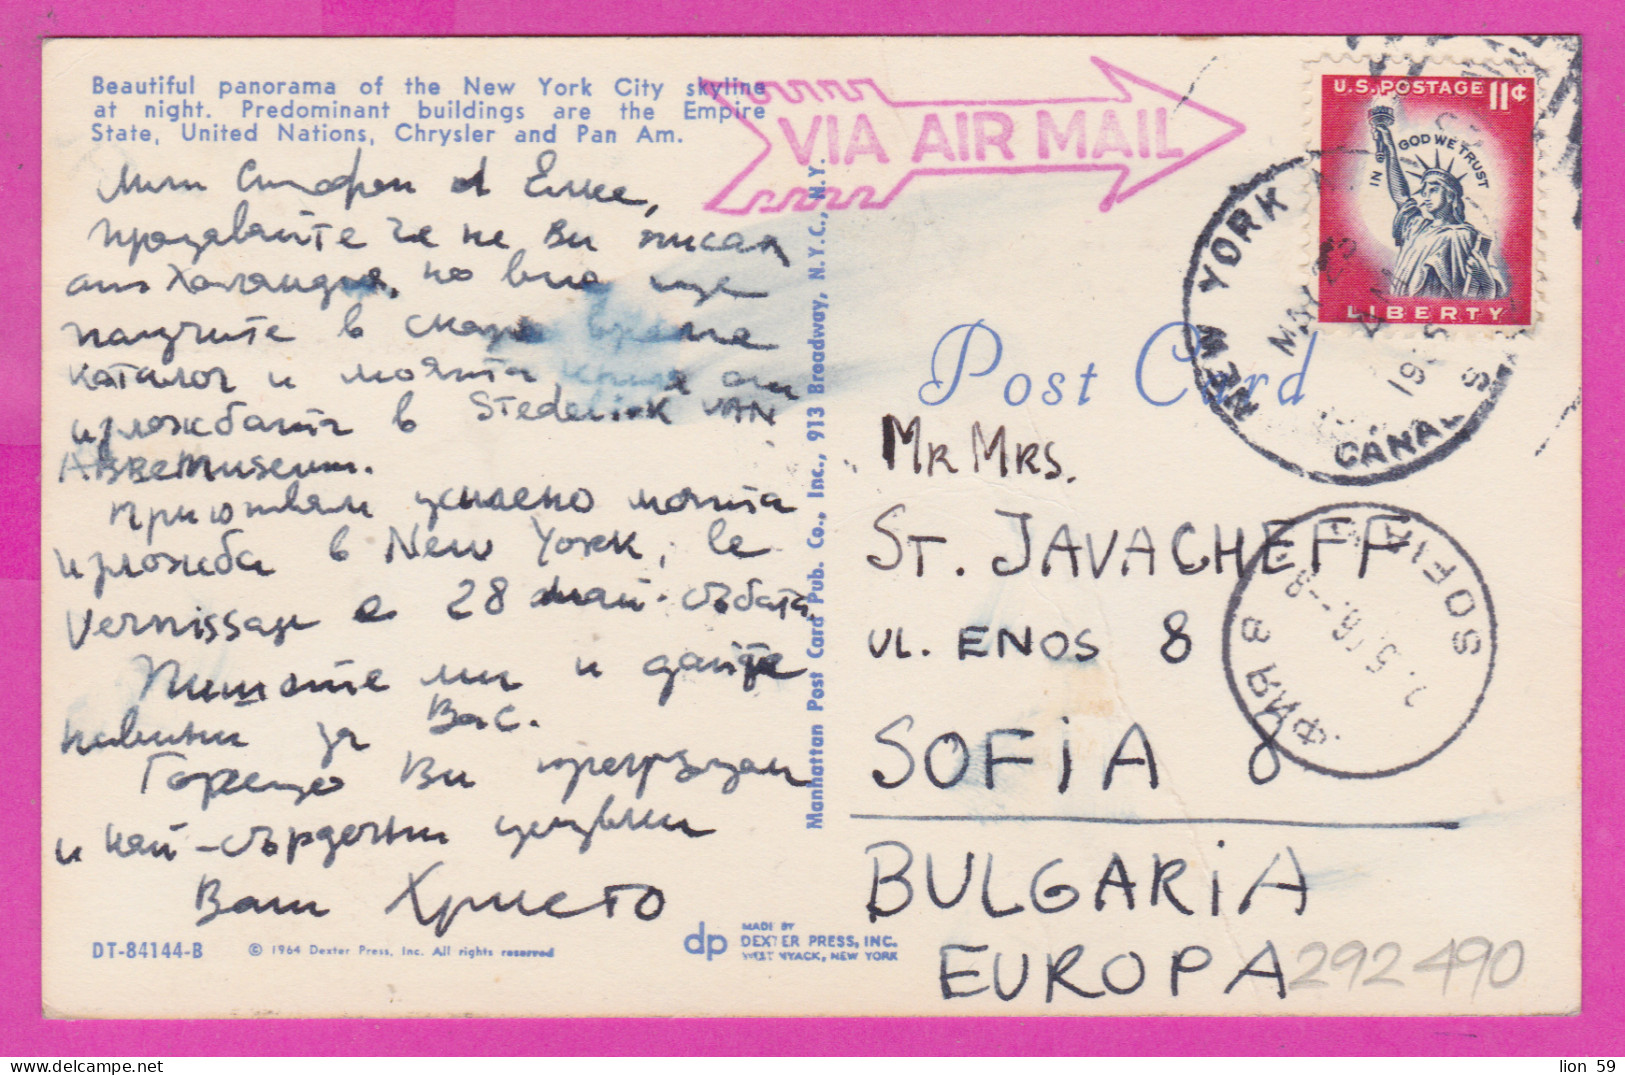 Beautiful panorama of the New York City skyline
at night. Predominant buildings are the Empire
State, United Nations, Chrysler and Pan Am.
VIA AIR MAIL
U.S. POSTAGE 11¢
IN GOD WE TRUST
LIBERTY
NEW YORK
MAY 23
CANAL S
Мили Стефан и Елке,
прощавайте че не Ви писах
от Холандия, но вие ще
получите в скоро време
каталог и моята книга от
изложбата в Stedelijk VAN
ABBEMuseum.
Приготвям усилено моята
изложба в New York, le
Vernissage е 28 май - събота
Пишете ми и дайте
новини за Вас.
Горещо Ви прегръщам
и най-сърдечни целувки
Ваш Христо
Manhattan Post Card Pub. Co., Inc., 913 Broadway, N.Y.C., N.Y.
Post Card
MR MRS.
ST. JAVACHEFF
UL. ENOS 8
SOFIA 8
BULGARIA
EUROPA
SOFIA
292490
DT-84144-B
© 1964 Dexter Press, Inc. All rights reserved
dp
MADE BY
DEXTER PRESS, INC.
WEST NYACK, NEW YORK
lion 59